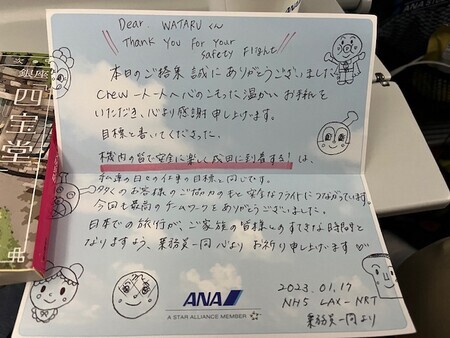 Dear. WATARU くん
Thank You for Your
Safety Flight
本日のご搭乗 誠にありがとうございました。
Crew一人一人へ心のこもった温かいお手紙を
いただき、心より感謝申し上げます。
目標と書いてくださった、
機内の皆で安全に楽しく成田に到着する!は、
私達の日々の仕事の目標と同じです。
多くのお客様のご協力のもと安全なフライトにつながっています。
今回も最高のチームワークをありがとうございました。
日本での旅行が、ご家族の皆様とのすてきな時間と
なりますよう、乗務員一同心よりお祈り申し上げます
ANA
A STAR ALLIANCE MEMBER
2023.01.17
NH5 LAX-NRT
乗務員一同より
四宝堂